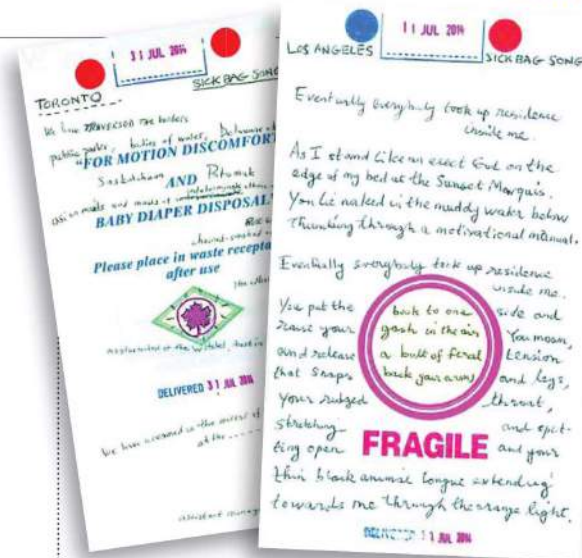 31 JUL 2014
TORONTO
SICK BAG SONG
We have TRAVERSED the borders
public parks, bodies of water,
"FOR MOTION DISCOMFORT
AND
BABY DIAPER DISPOSAL"
Please place in waste recepta
after use
DELIVERED 31 JUL 2014
We have
at the
assistant manag
11 JUL 2014
LOS ANGELES
SICK BAG SONG
Eventually everybody took up residence
inside me.
As I stand like an erect God on the
edge of my bed at the Sunset Marquis.
You lie naked in the muddy water below
Thumbing through a motivational manual.
Eventually everybody took up residence
inside me.
You put the book to one side and
raise your gash in the air You moan,
and release a bolt of feral tension
that snaps back your arms and legs,
your ridged throat,
stretching and spit-
ting open FRAGILE and your
thin black animal tongue extending
towards me through the orange light.
DELIVERED 11 JUL 2014